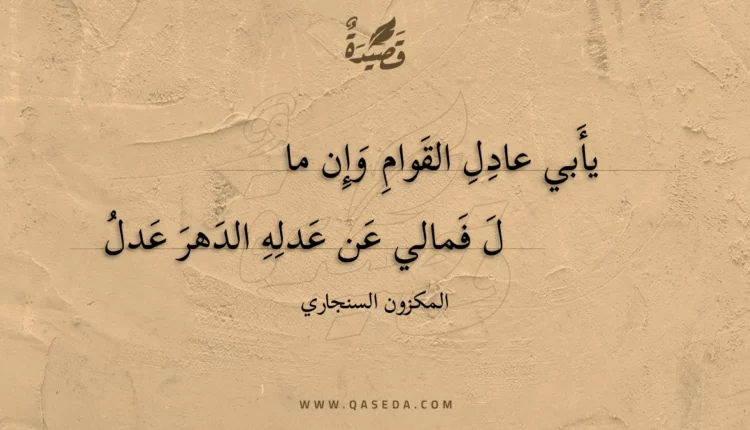 قَصِيدَةٌ
يأَبي عادِلِ القَوامِ وَإِن ما
لَ فَمالي عَن عَدلِهِ الدَهرَ عَدلُ
المكزون السنجاري
WWW.QASEDA.COM